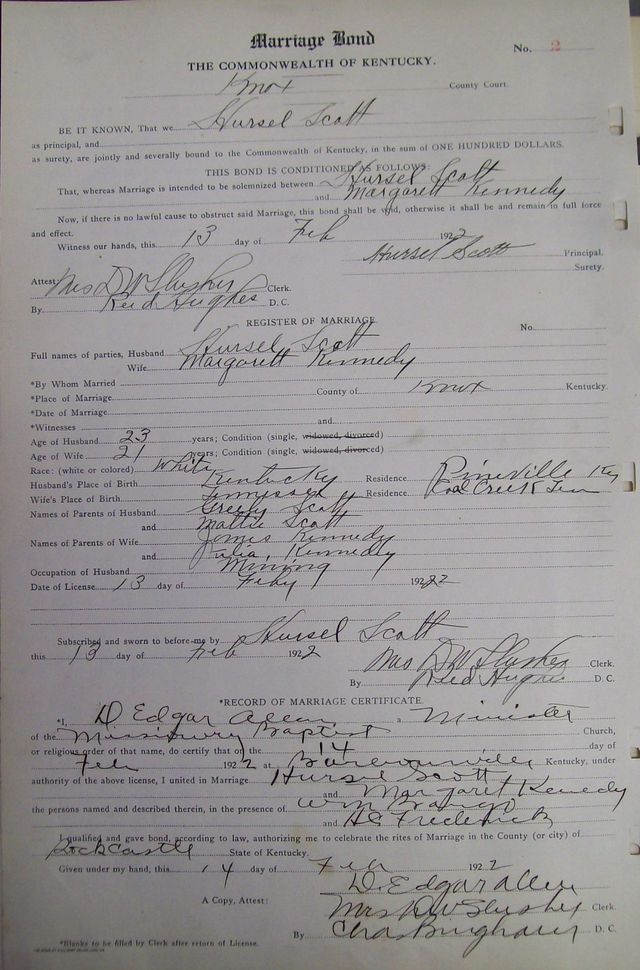 Marriage Bond
No. 2
THE COMMONWEALTH OF KENTUCKY.
Knox County Court.
BE IT KNOWN, That we Hursel Scott
as principal, and
as surety, are jointly and severally bound to the Commonwealth of Kentucky, in the sum of ONE HUNDRED DOLLARS.
THIS BOND IS CONDITIONED AS FOLLOWS:
That, whereas Marriage is intended to be solemnized between Hursel Scott
and Margarett Kennedy
Now, if there is no lawful cause to obstruct said Marriage, this bond shall be void, otherwise it shall be and remain in full force
and effect.
Witness our hands, this 13 day of Feb 1922
Hursel Scott Principal.
Surety.
Attest: Mrs D W Slusher Clerk.
By Reid Hughes D. C.
REGISTER OF MARRIAGE
No.
Full names of parties, Husband Hursel Scott
Wife Margarett Kennedy
*By Whom Married
*Place of Marriage County of Knox Kentucky.
*Date of Marriage
*Witnesses and
Age of Husband 23 years; Condition (single, widowed, divorced)
Age of Wife 21 years; Condition (single, widowed, divorced)
Race: (white or colored) White
Husband's Place of Birth Kentucky Residence Pineville Ky
Wife's Place of Birth Residence Creek
Names of Parents of Husband Scott
and Mattie Scott
Names of Parents of Wife James Kennedy
and Julia Kennedy
Occupation of Husband Mining
Date of License 13 day of Feby 1922
Subscribed and sworn to before me by Hursel Scott
this 13 day of Feb 1922
Mrs D W Slusher Clerk.
By Reid Hughes D. C.
*RECORD OF MARRIAGE CERTIFICATE
*I, D. Edgar Allen a Minister
of the Missionary Baptist Church,
or religious order of that name, do certify that on the 14 day of
Feb 1922 at Kentucky, under
authority of the above license, I united in Marriage Hursel Scott
and Margaret Kenedy
the persons named and described therein, in the presence of Wm
and Frederick
I qualified and gave bond, according to law, authorizing me to celebrate the rites of Marriage in the County (or city) of
Rockcastle State of Kentucky.
Given under my hand, this 14 day of Feb 1922
D. Edgar Allen
A Copy, Attest: Mrs D W Slusher Clerk.
By Chas Bingham D. C.
*Blanks to be filled by Clerk after return of License.